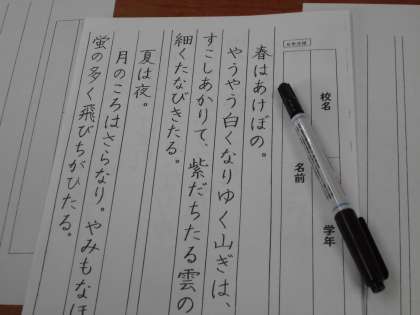 校名
学年
名前
春はあけぼの。
やうやう白くなりゆく山ぎは、
すこしあかりて、紫だちたる雲の
細くたなびきたる。
夏は夜。
月のころはさらなり。やみもなほ
蛍の多く飛びちがひたる。